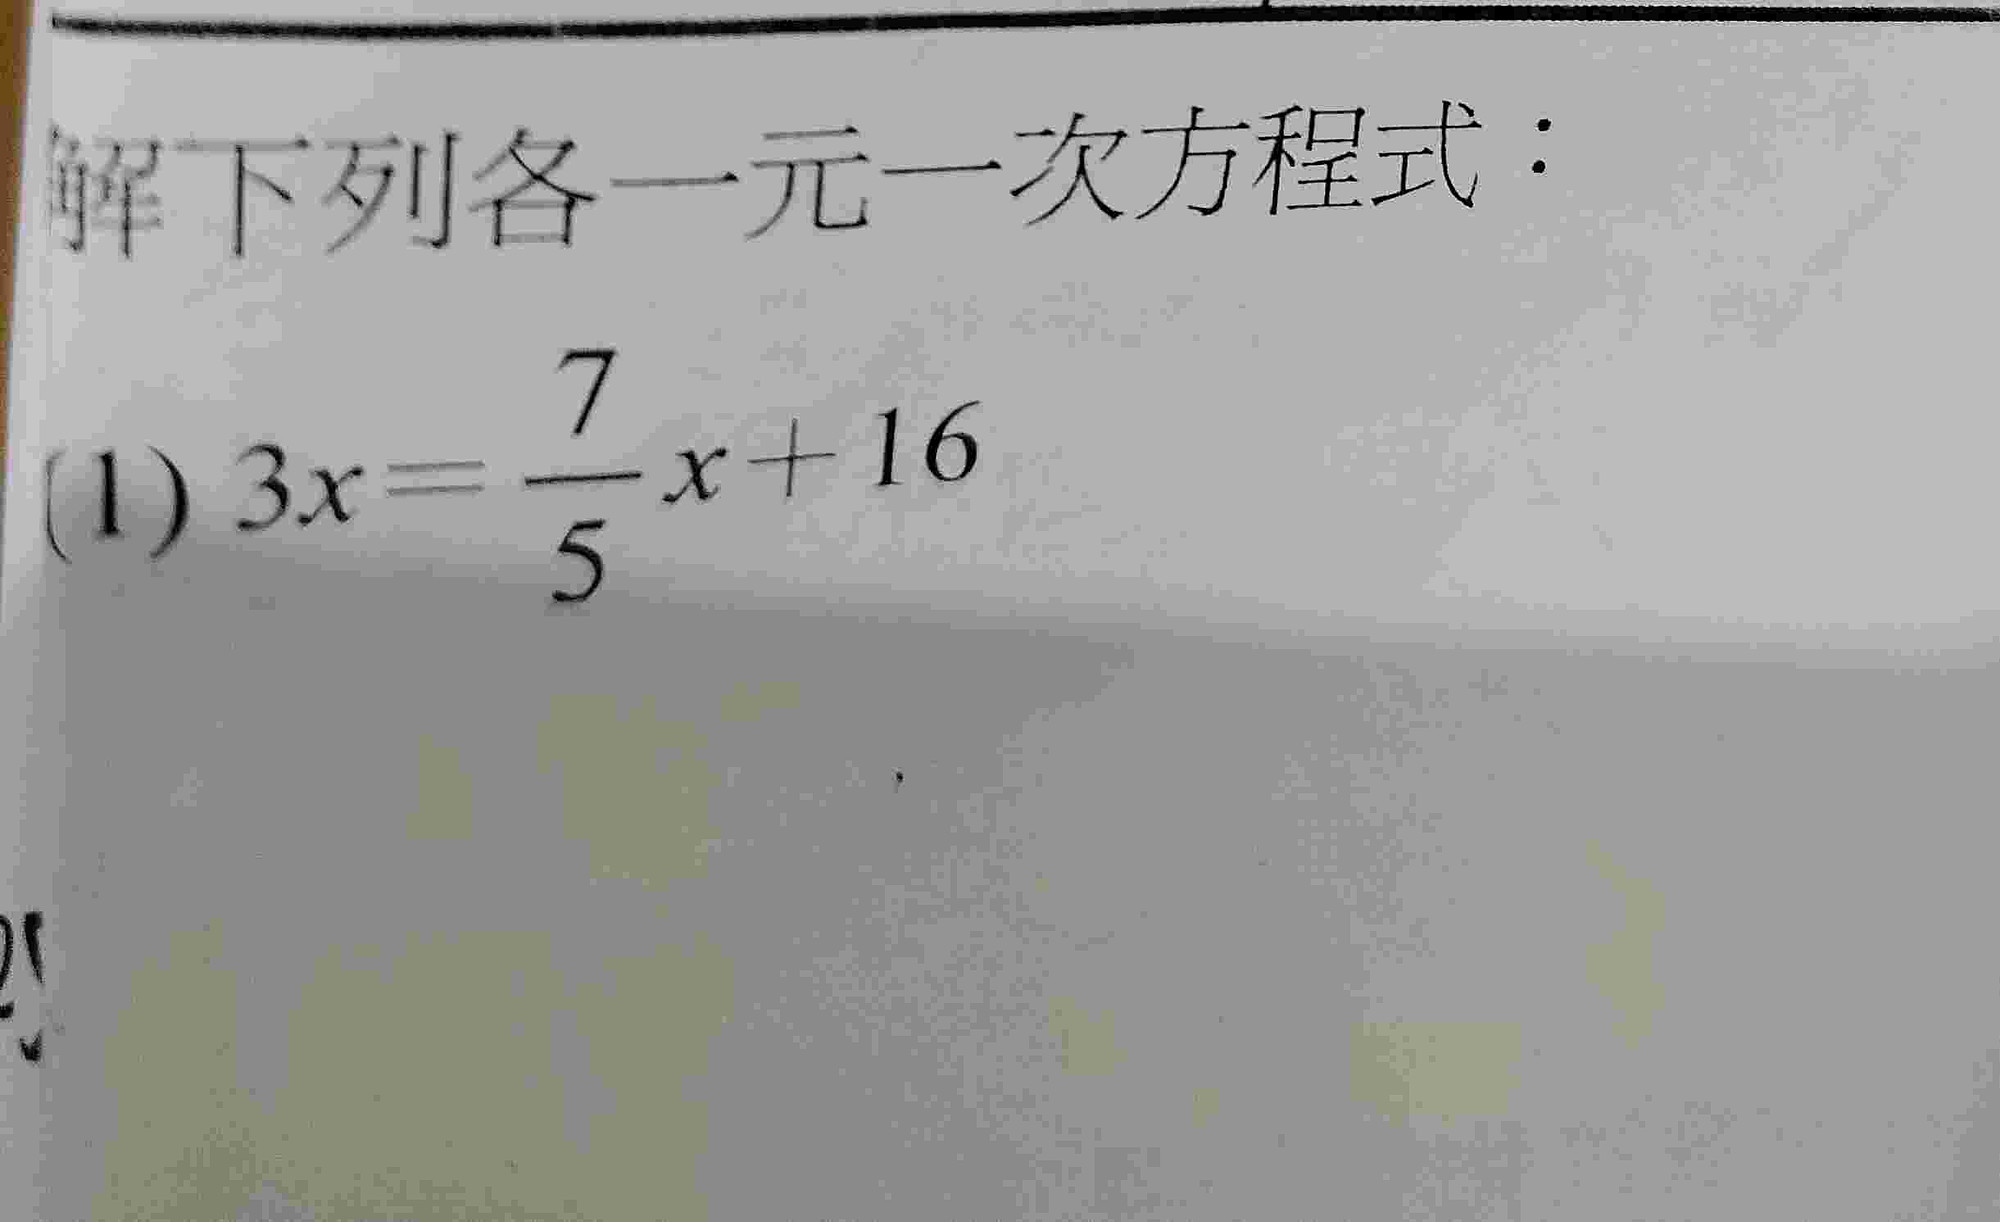 解下列各一元一次方程式：
(1) 3x=7/5 x+16